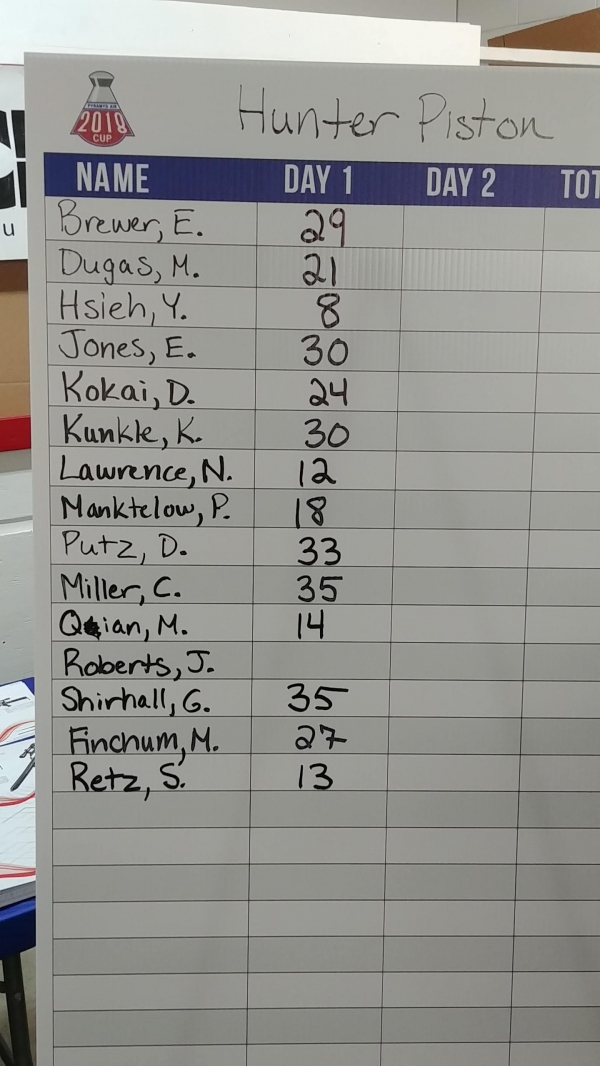 PYRAMYD AIR
2018
CUP
Hunter Piston
NAME DAY 1 DAY 2 TOT
Brewer, E. 29
Dugas, M. 21
Hsieh, Y. 8
Jones, E. 30
Kokai, D. 24
Kunkle, K. 30
Lawrence, N. 12
Manktelow, P. 18
Putz, D. 33
Miller, C. 35
Qian, M. 14
Roberts, J.
Shirhall, G. 35
Finchum, M. 27
Retz, S. 13
u